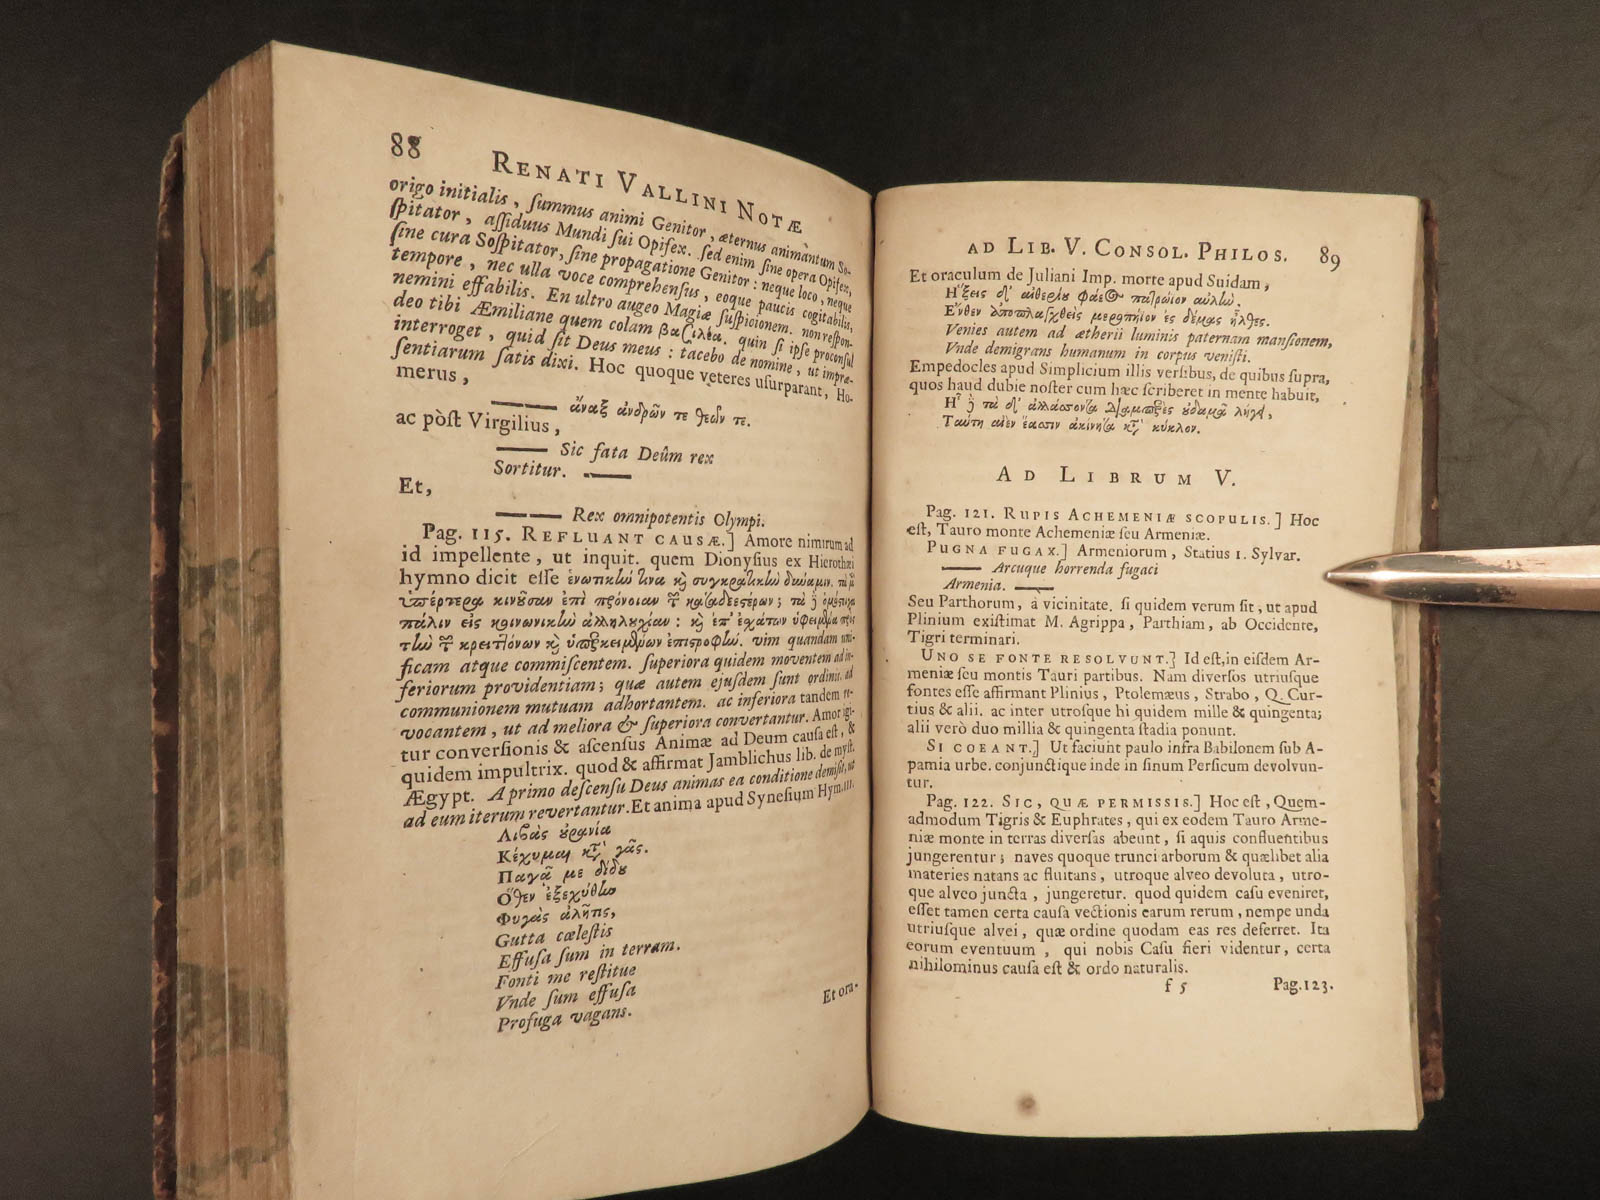 88
RENATI VALLINI NOTÆ
origo initialis, ſummus animi Genitor, æternus animantum So-
ſpitator, aſſiduus Mundi ſui Opifex. ſed enim ſine opera Opifex,
ſine cura Soſpitator, ſine propagatione Genitor: neque loco, neque
tempore, nec ulla voce comprehenſus, eoque paucis cogitabilis,
nemini effabilis. En ultro augeo Magiæ ſuſpicionem. non reſpon-
deo tibi Æmiliane quem colam βασιλέα. quin ſi ipſe proconſul
interroget, quid ſit Deus meus: tacebo de nomine, ut impræ-
ſentiarum ſatis dixi. Hoc quoque veteres uſurparant, Ho-
merus,
ἄναξ ἀνδρῶν τε θεῶν τε.
ac pòſt Virgilius,
Sic fata Deûm rex
Sortitur.
Et,
Rex omnipotentis Olympi.
Pag. 115. REFLUANT CAUSÆ.] Amore nimirum ad
id impellente, ut inquit. quem Dionyſius ex Hierothæi
hymno dicit eſſe ἑνωτικὴν τινα καὶ συγκρατικὴν δύναμιν. τὰ μὲν
ὑπέρτερα κινοῦσαν ἐπὶ πρόνοιαν τῶν καταδεεστέρων; τὰ δὲ ὁμόστοιχα
πάλιν εἰς κοινωνικὴν ἀλληλουχίαν: καὶ ἐπ' ἐχάτων ὑφειμένα πρὸς
τὴν τῶν κρειττόνων καὶ ὑπερκειμένων ἐπιστροφήν. vim quandam uni-
ficam atque commiſcentem. ſuperiora quidem moventem ad in-
feriorum providentiam; quæ autem ejuſdem ſunt ordinis. ad
communionem mutuam adhortantem. ac inferiora tandem re-
vocantem, ut ad meliora & ſuperiora convertantur. Amor igi-
tur converſionis & aſcenſus Animæ ad Deum cauſa eſt, &
quidem impultrix. quod & affirmat Jamblichus lib. de myſt.
Ægypt. A primo deſcenſu Deus animas ea conditione demiſit, ut
ad eum iterum revertantur. Et anima apud Syneſium Hym. III.
Λιβὰς οὐρανία
Κέχυμαι κατὰ γᾶς.
Παγᾷ με δίδου
Ὅθεν ἐξεχύθην
Φυγὰς ἀλήτης,
Gutta cœleſtis
Effuſa ſum in terram.
Fonti me reſtitue
Vnde ſum effuſa
Profuga vagans.
Et ora-
AD LIB. V. CONSOL. PHILOS. 89
Et oraculum de Juliani Imp. morte apud Suidam,
Ἥξεις δ' αἰθερίου φάεος πατρώιον αὐλὴν.
Ἔνθεν ἀποπλαγχθεὶς μεροπήιον ἐς δέμας ἦλθες.
Venies autem ad ætherii luminis paternam manſionem,
Vnde demigrans humanum in corpus veniſti.
Empedocles apud Simplicium illis verſibus, de quibus ſupra,
quos haud dubie noſter cum hæc ſcriberet in mente habuit,
Ἧι δὲ τὰ δ' ἀλλάσσοντα διαμπερὲς οὐδαμᾶ λήγει,
Ταύτῃ αἰὲν ἔασσιν ἀκίνητα κατὰ κύκλον.
AD LIBRUM V.
Pag. 121. RUPIS ACHEMENIÆ SCOPULIS.] Hoc
eſt, Tauro monte Achemeniæ ſeu Armeniæ.
PUGNA FUGAX.] Armeniorum, Statius 1. Sylvar.
Arcuque horrenda fugaci
Armenia.
Seu Parthorum, à vicinitate. ſi quidem verum ſit, ut apud
Plinium exiſtimat M. Agrippa, Parthiam, ab Occidente,
Tigri terminari.
UNO SE FONTE RESOLVUNT.] Id eſt, in eiſdem Ar-
meniæ ſeu montis Tauri partibus. Nam diverſos utriuſque
fontes eſſe affirmant Plinius, Ptolemæus, Strabo, Q. Cur-
tius & alii. ac inter utroſque hi quidem mille & quingenta;
alii verò duo millia & quingenta ſtadia ponunt.
SI COEANT.] Ut faciunt paulo infra Babilonem ſub A-
pamia urbe. conjunctique inde in ſinum Perſicum devolvun-
tur.
Pag. 122. SIC, QUÆ PERMISSIS.] Hoc eſt, Quem-
admodum Tigris & Euphrates, qui ex eodem Tauro Arme-
niæ monte in terras diverſas abeunt, ſi aquis confluentibus
jungerentur; naves quoque trunci arborum & quælibet alia
materies natans ac fluitans, utroque alveo devoluta, utro-
que alveo juncta, jungeretur. quod quidem caſu eveniret,
eſſet tamen certa cauſa vectionis earum rerum, nempe unda
utriuſque alvei, quæ ordine quodam eas res deferret. Ita
eorum eventuum, qui nobis Caſu fieri videntur, certa
nihilominus cauſa eſt & ordo naturalis.
f 5 Pag. 123.